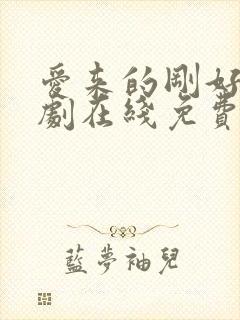 愛来的剛好
劇在綫免費
藍夢袖兒